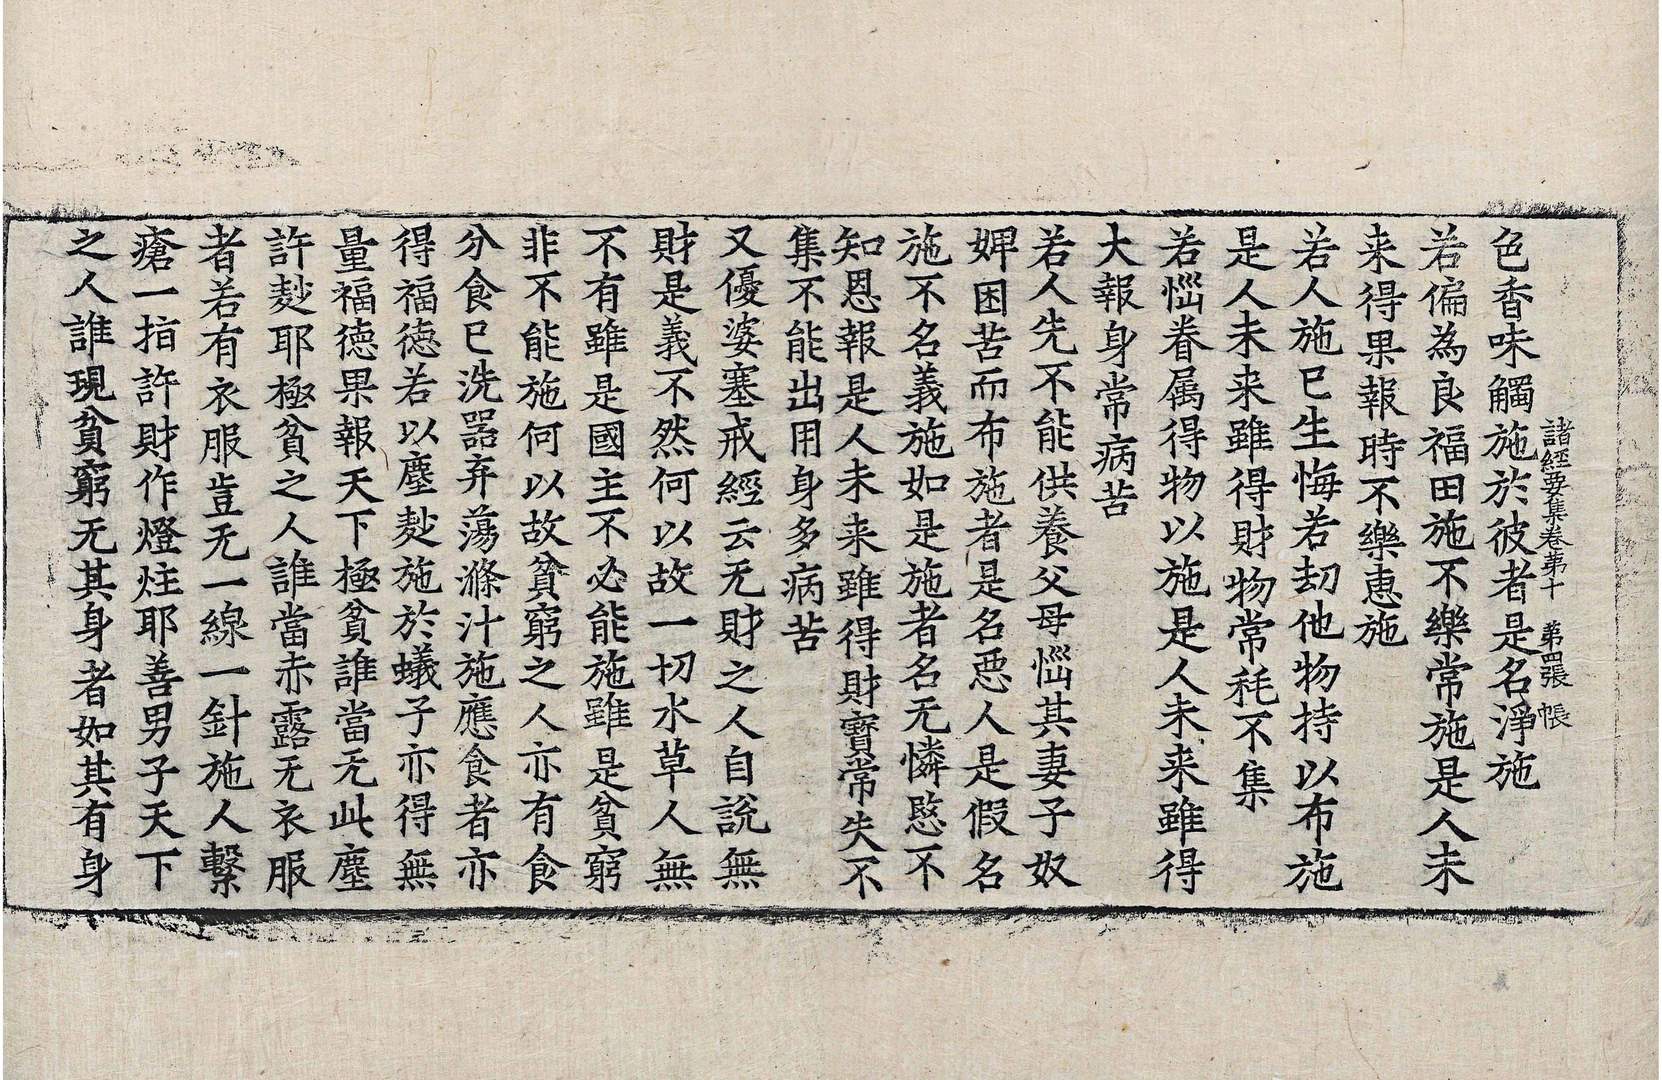 諸經要集卷第十　第四張　帳
色香味觸施於彼者是名淨施
若偏為良福田施不樂常施是人未
来得果報時不樂惠施
若人施已生悔若刧他物持以布施
是人未来雖得財物常耗不集
若惱眷属得物以施是人未来雖得
大報身常病苦
若人先不能供養父母惱其妻子奴
婢困苦而布施者是名惡人是假名
施不名義施如是施者名无憐愍不
知恩報是人未来雖得財寶常失不
集不能出用身多病苦
又優婆塞戒經云无財之人自說無
財是義不然何以故一切水草人無
不有雖是國主不必能施雖是貧窮
非不能施何以故貧窮之人亦有食
分食已洗器弃蕩滌汁施應食者亦
得福德若以塵麨施於蟻子亦得無
量福德果報天下極貧誰當无此塵
許麨耶極貧之人誰當赤露无衣服
者若有衣服豈无一線一針施人繫
瘡一指許財作燈炷耶善男子天下
之人誰現貧窮无其身者如其有身